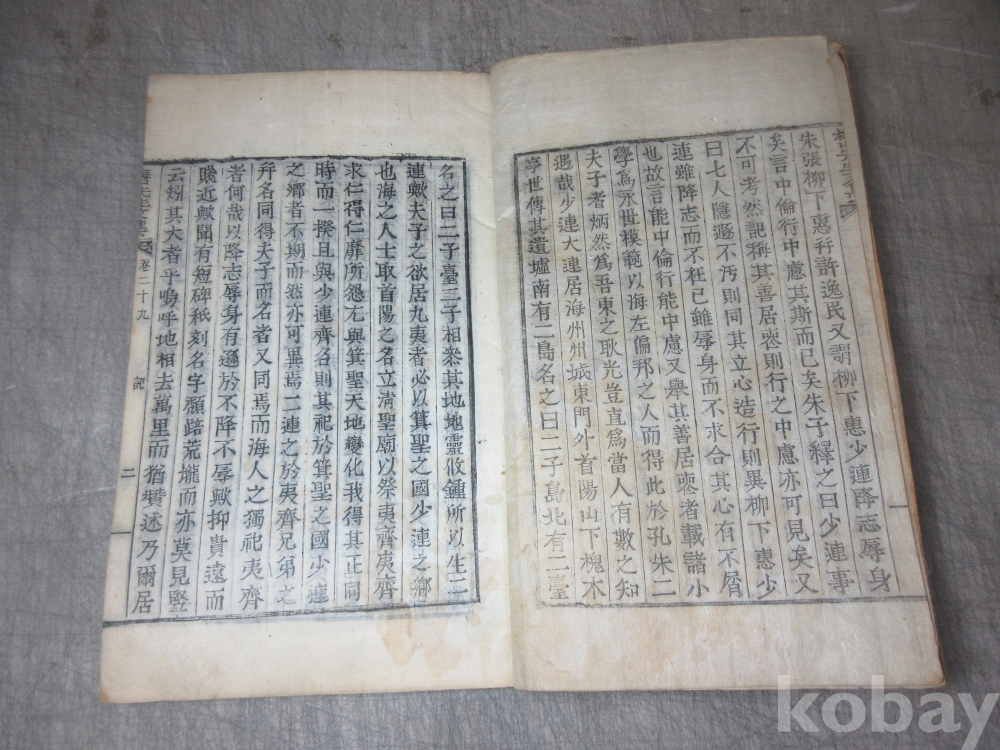 朱張柳下惠幷許逸民又謂柳下惠少連降志辱身
矣言中倫行中慮其斯而已矣朱子釋之曰少連事
不可考然記稱其善居喪則行之中慮亦可見矣又
曰七人隱遯不汚則同其立心造行則異柳下惠少
連雖降志而不枉己雖辱身而不求合其心有不屑
也故言能中倫行能中慮又擧其善居喪者載諸小
學爲永世模範以海左偏邦之人而得此於孔朱二
夫子者炳然爲吾東之耿光豈直爲當人有數之知
遇哉少連大連居海州州城東門外首陽山下槐木
亭世傳其遺墟南有二島名之曰二子島北有二臺
名之曰二子臺二子相叅其地地靈攸鍾所以生二
連歟夫子之欲居九夷者必以箕聖之國少連之鄕
也海之人士取首陽之名立淸聖廟以祭夷齊夷齊
求仁得仁靡所怨尤與箕聖天地變化我得其正同
時而一揆且與少連齊名則其祀於箕聖之國少連
之鄕者不期而然亦可異焉二連之於夷齊兄弟之
幷名同得夫子而名者又同焉而海人之獨祀夷齊
者何哉以降志辱身有遜於不降不辱歟抑貴遠而
賤近歟聞有短碑秖刻名字顚踣荒壠而亦莫見竪
云矧其大者乎嗚呼地相去萬里而猶攢述乃爾居
卷二十九
記
二